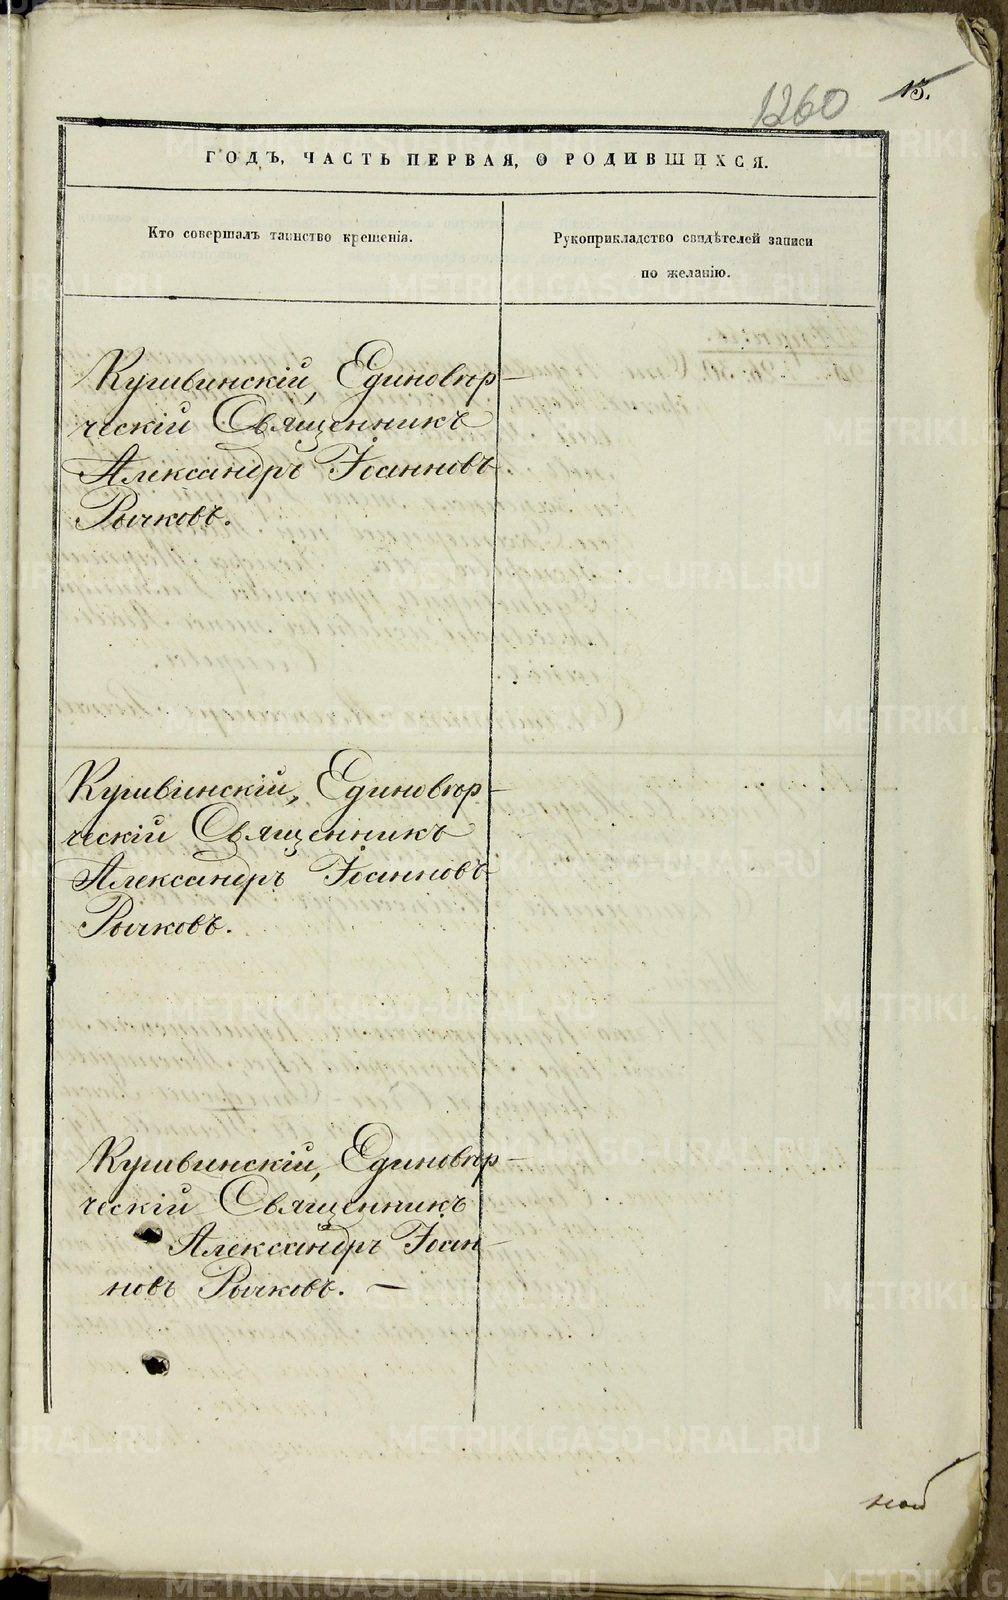 1260 15.
ГОДЪ, ЧАСТЬ ПЕРВАЯ, О РОДИВШИХСЯ.
Кто совершалъ таинство крещенія.
Рукоприкладство свидѣтелей записи
по желанію.
Кушвинскій, Единовѣр-
ческій Священникъ
Александръ Іоанновъ
Рычковъ.
Кушвинскій, Единовѣр-
ческій Священникъ
Александръ Іоанновъ
Рычковъ.
Кушвинскій, Единовѣр-
ческій Священникъ
Александръ Іоан-
новъ Рычковъ. —
METRIKI.GASO-URAL.RU